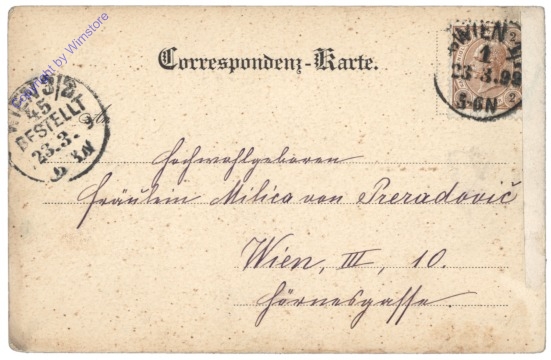 Correspondenz-Karte.
WIEN
1
23.3.99
3-6N
2
2
Copyright by Wimstore
WIEN 3/3
45
BESTELLT
23.3.9
6.N
An
Hochwohlgeboren
Fräulein Milica von Preradović
Wien, III, 10.
Hörnesgasse.